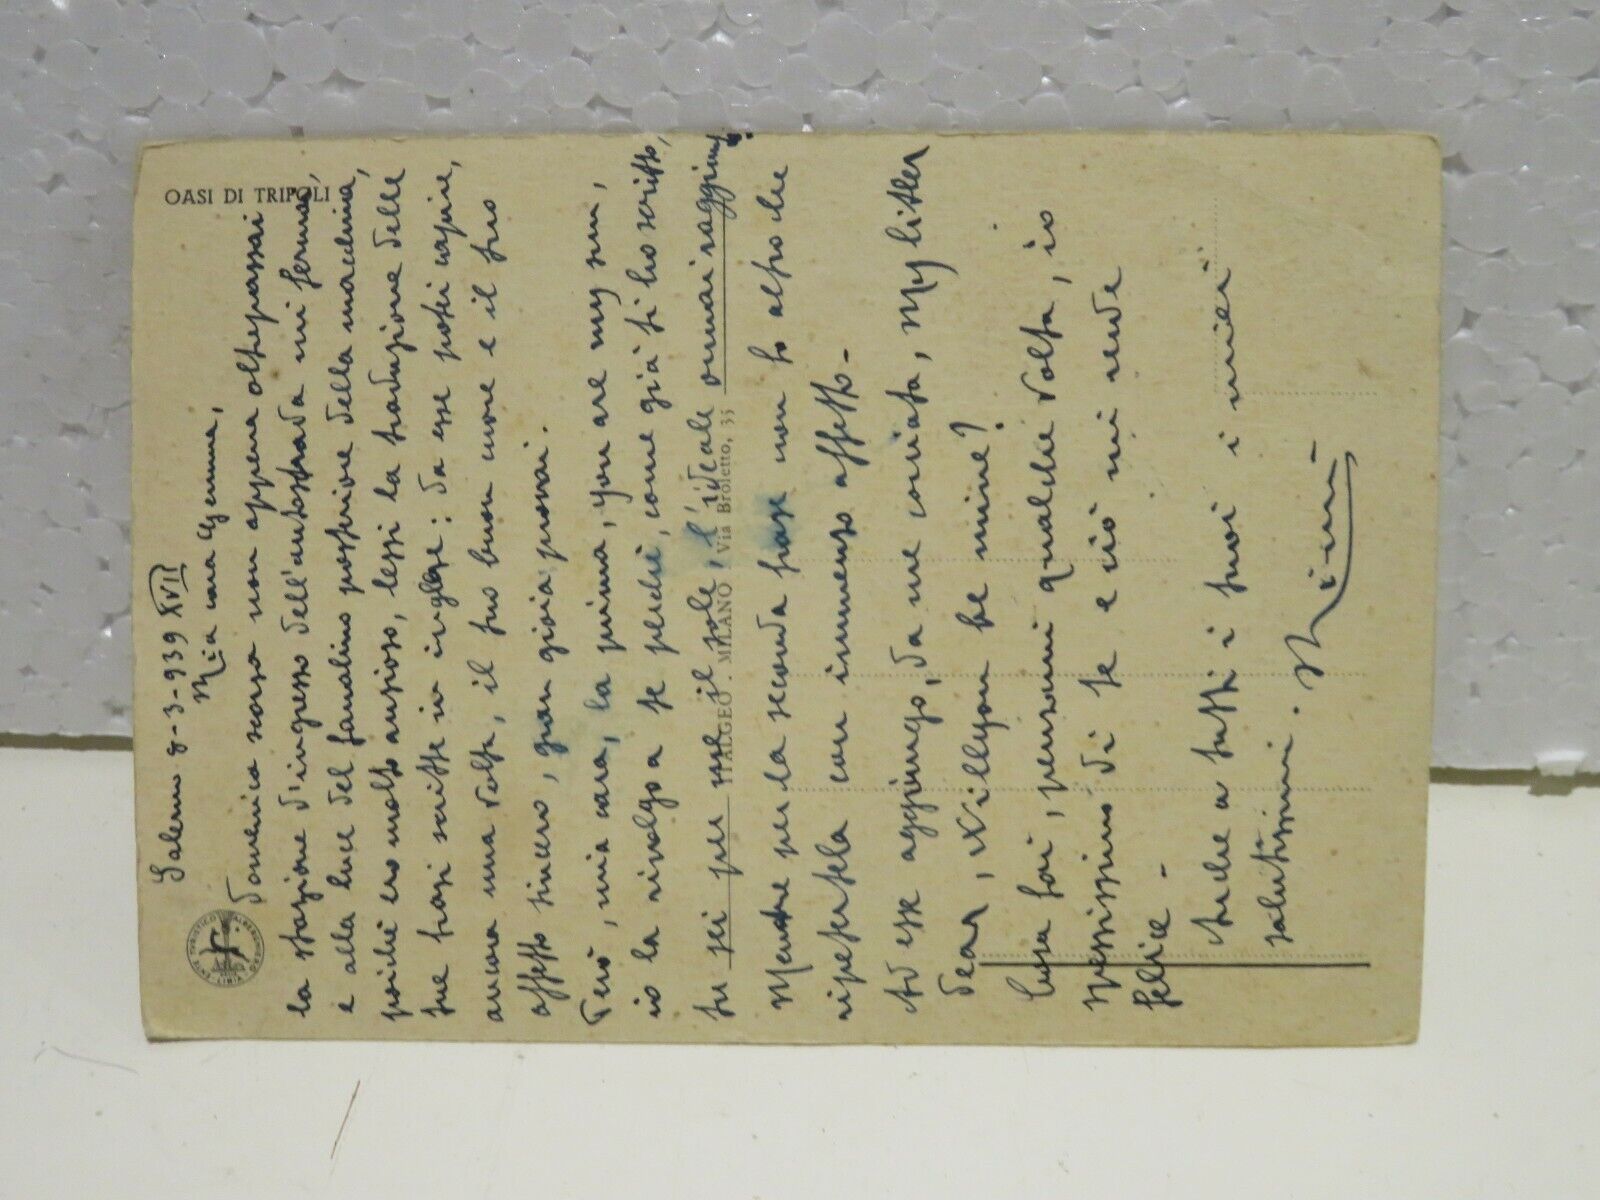 OASI DI TRIPOLI
ENTE TURISTICO ALBERGHIERO LIBIA
Salerno 8-3-939 XVII
Mia cara Gemma,
Domenica scorsa non appena oltrepassai
la stazione d'ingresso dell'autostrada mi fermai,
e alla luce del fanalino posteriore della macchina,
poiché ero molto ansioso, lessi la traduzione delle
tue frasi scritte in inglese: da esse potei capire,
ancora una volta, il tuo buon cuore e il tuo
affetto sincero, gran gioia provai.
Però, mia cara, la prima, you are my sun,
io la rivolgo a te perché, come già ti ho scritto,
tu sei per me il sole, l'ideale ormai raggiunto
ITALGEO . MILANO . Via Broletto, 35
Mentre per la seconda frase non fo altro che
ripetertela con immenso affetto-
Ad esse aggiungo, da me coniata, My litler
dear, Villyou be mine?
Cosa fai, pensami qualche volta, io
spessissimo di te e ciò mi rende
felice-
Anche a tutti i tuoi i miei
salutissimi.